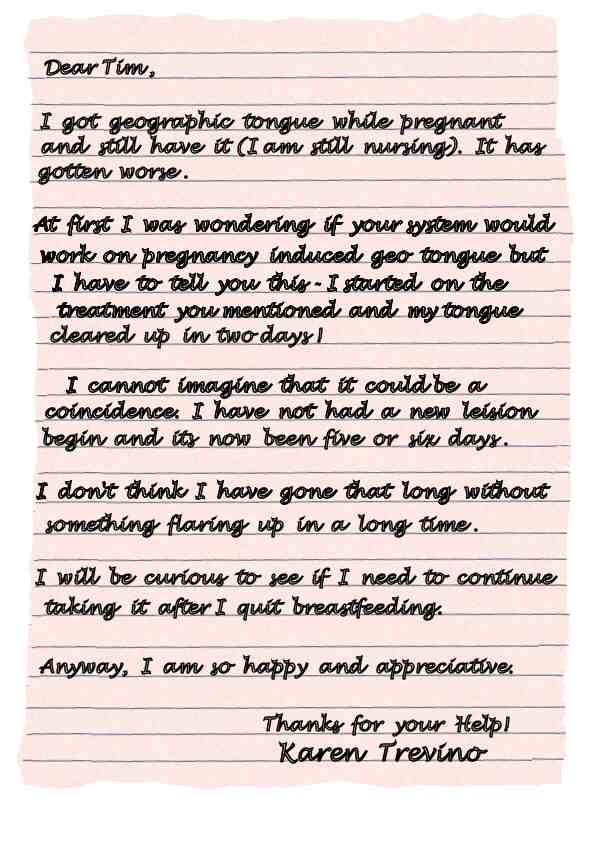 Dear Tim,
I got geographic tongue while pregnant
and still have it (I am still nursing). It has
gotten worse.
At first I was wondering if your system would
work on pregnancy induced geo tongue but
I have to tell you this - I started on the
treatment you mentioned and my tongue
cleared up in two days!
I cannot imagine that it could be a
coincidence. I have not had a new leision
begin and its now been five or six days.
I don't think I have gone that long without
something flaring up in a long time.
I will be curious to see if I need to continue
taking it after I quit breastfeeding.
Anyway, I am so happy and appreciative.
Thanks for your Help!
Karen Trevino